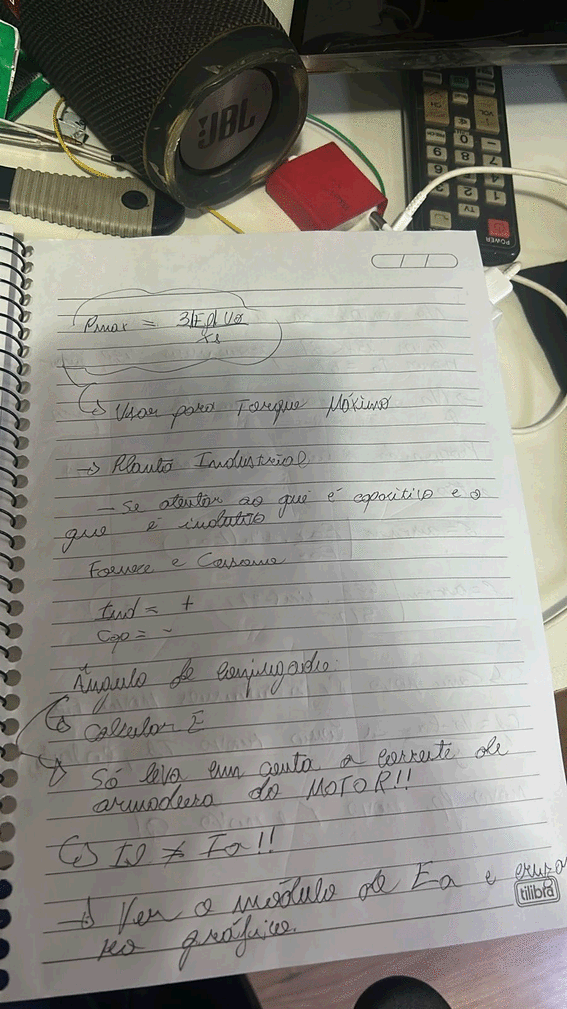 JBL
POWER
TV
VOL
Pmax = 3|Ef| Vø
Xs
↳ Usar para Torque Máximo
→ Planta Industrial
- Se atentar ao que é capacitivo e o
que é indutivo
Fornece e Consome
Ind = +
Cap = -
Ângulo de conjugado:
↳ Calcular E
↳ Só leva em conta a corrente de
armadura do MOTOR!!
↳ Il ≠ Ia!!
→ Ver o módulo de Ea e cruzar
no gráfico.
tilibra